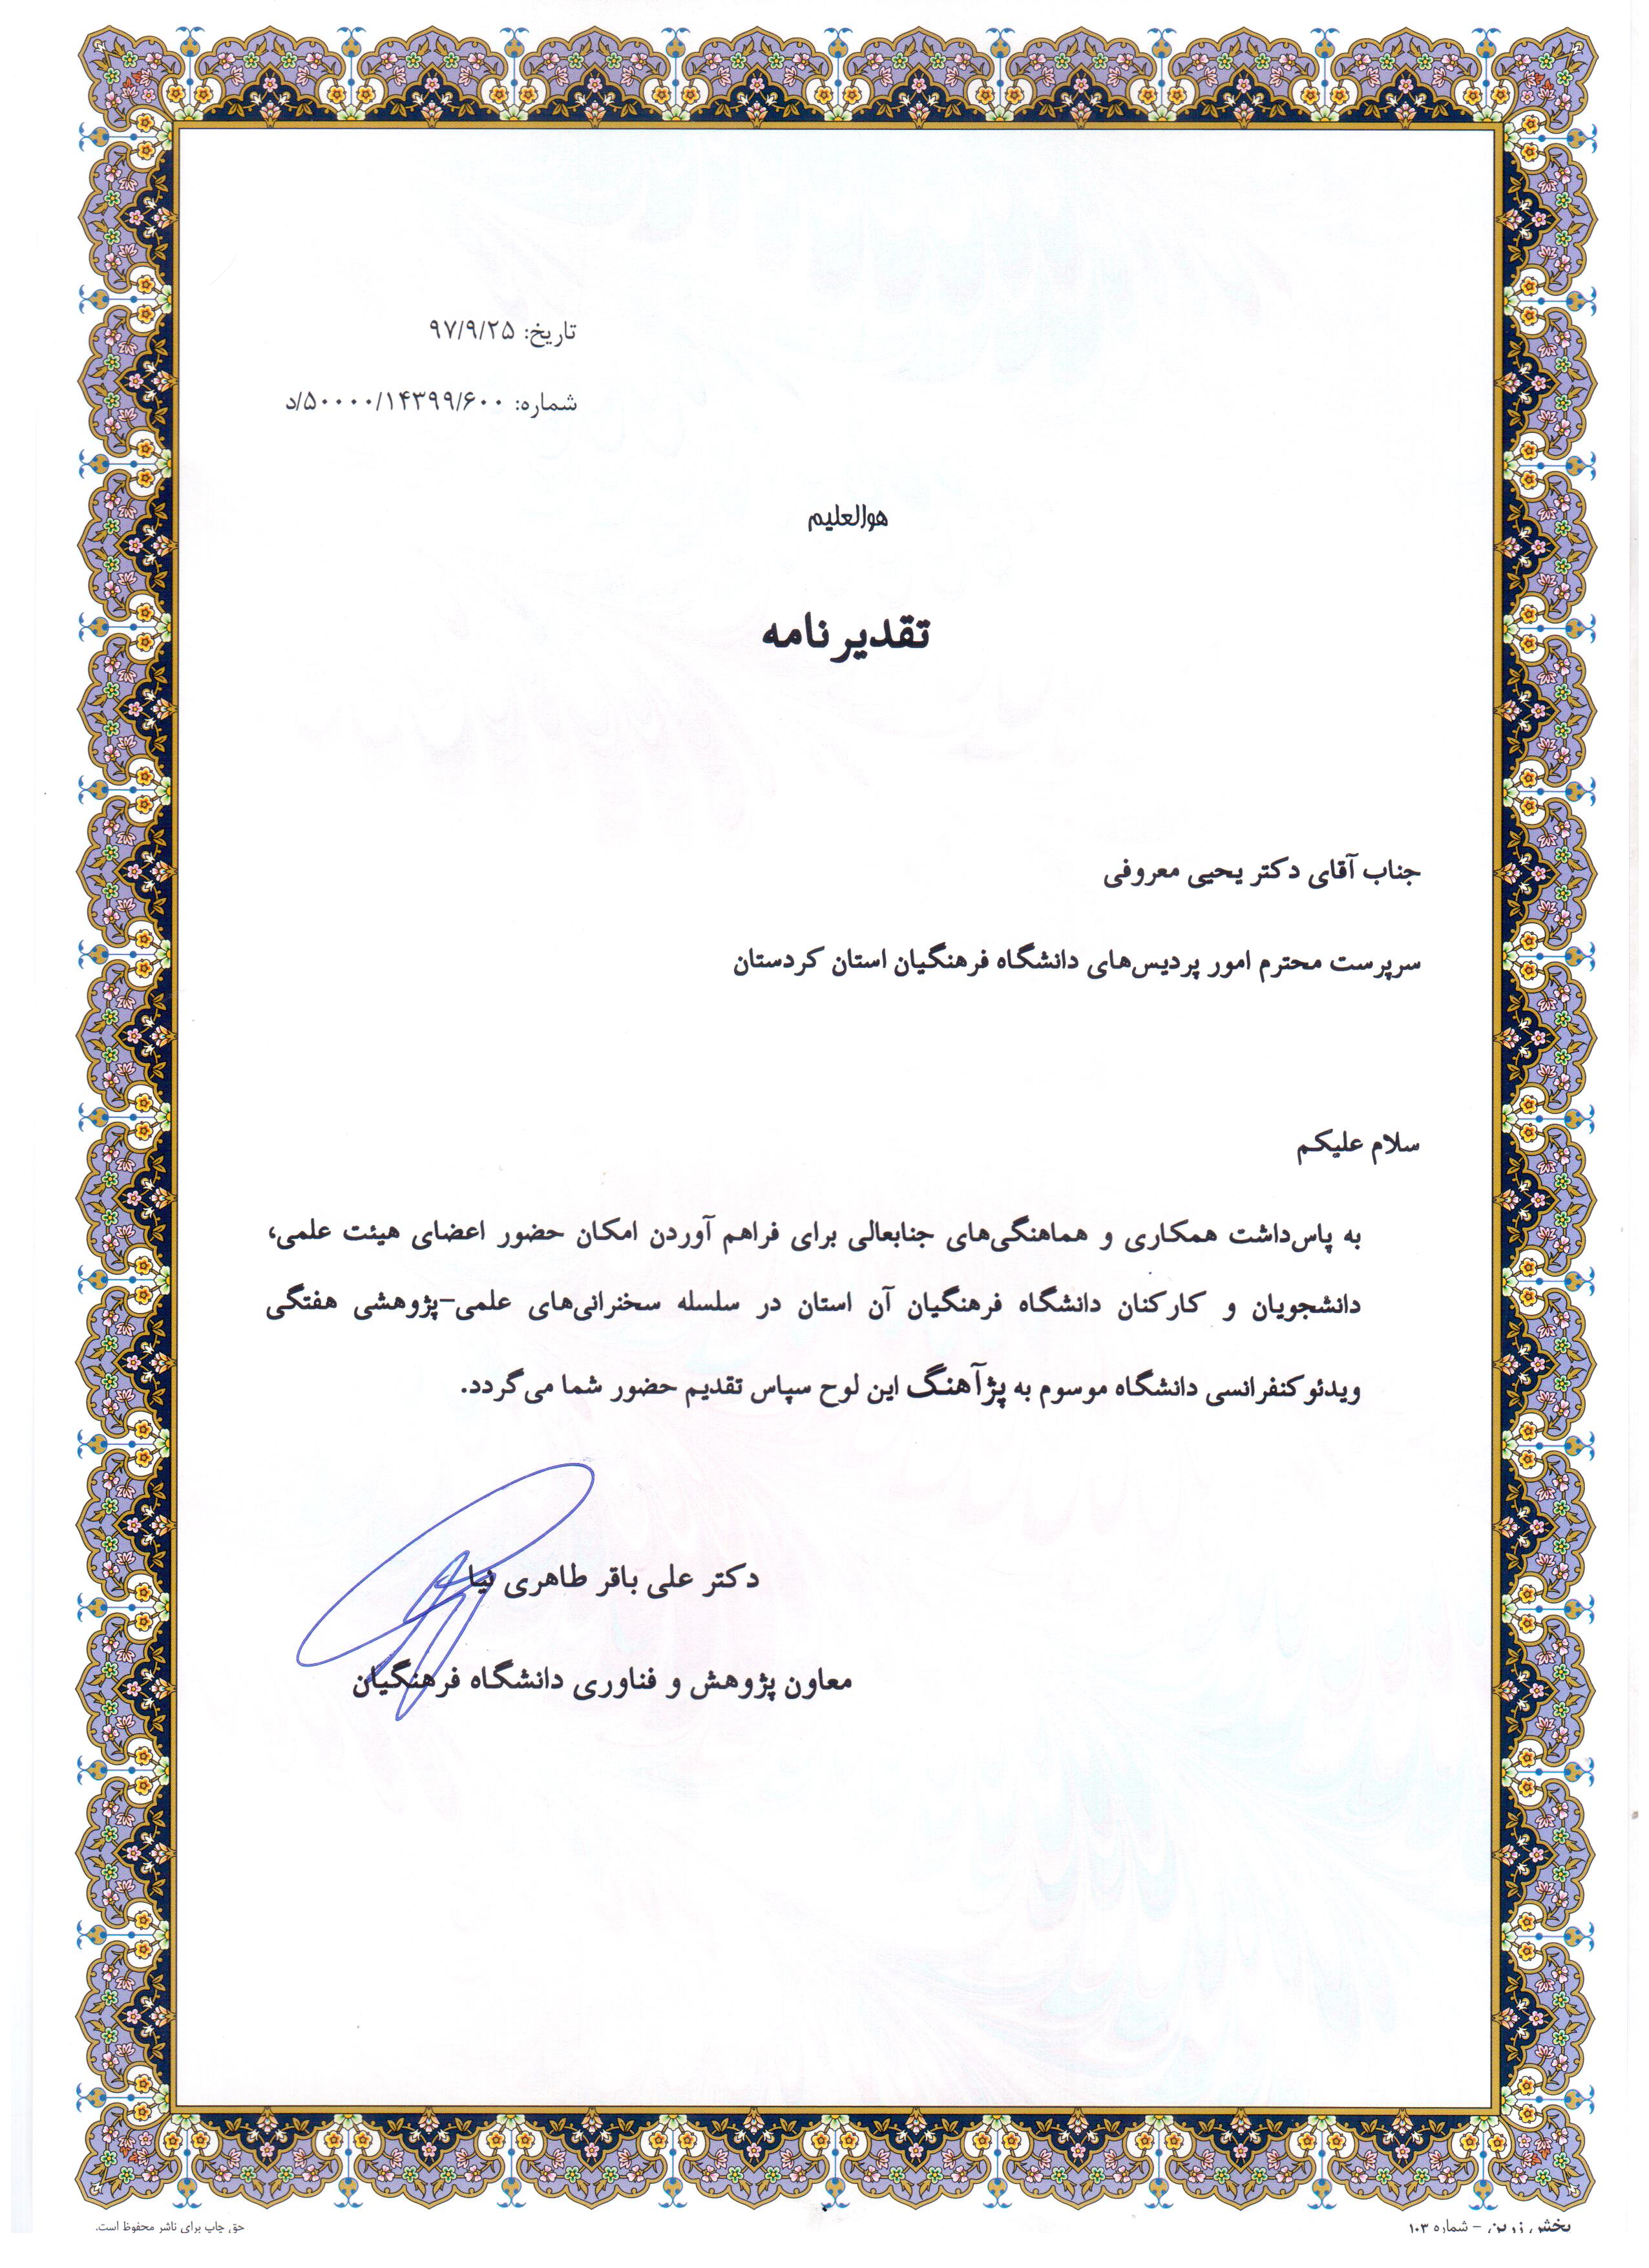 تاریخ: ۹۷/۹/۲۵
شماره: ۵۰۰۰۰/۱۴۳۹۹/۶۰۰/د
هوالعلیم
تقدیرنامه
جناب آقای دکتر یحیی معروفی
سرپرست محترم امور پردیس‌های دانشگاه فرهنگیان استان کردستان
سلام علیکم
به پاس‌داشت همکاری و هماهنگی‌های جنابعالی برای فراهم آوردن امکان حضور اعضای هیئت علمی،
دانشجویان و کارکنان دانشگاه فرهنگیان آن استان در سلسله سخنرانی‌های علمی-پژوهشی هفتگی
ویدئوکنفرانسی دانشگاه موسوم به پژآهنگ این لوح سپاس تقدیم حضور شما می‌گردد.
دکتر علی باقر طاهری نیا
معاون پژوهش و فناوری دانشگاه فرهنگیان
پخش زرین - شماره ۱۰۳
حق چاپ برای ناشر محفوظ است.